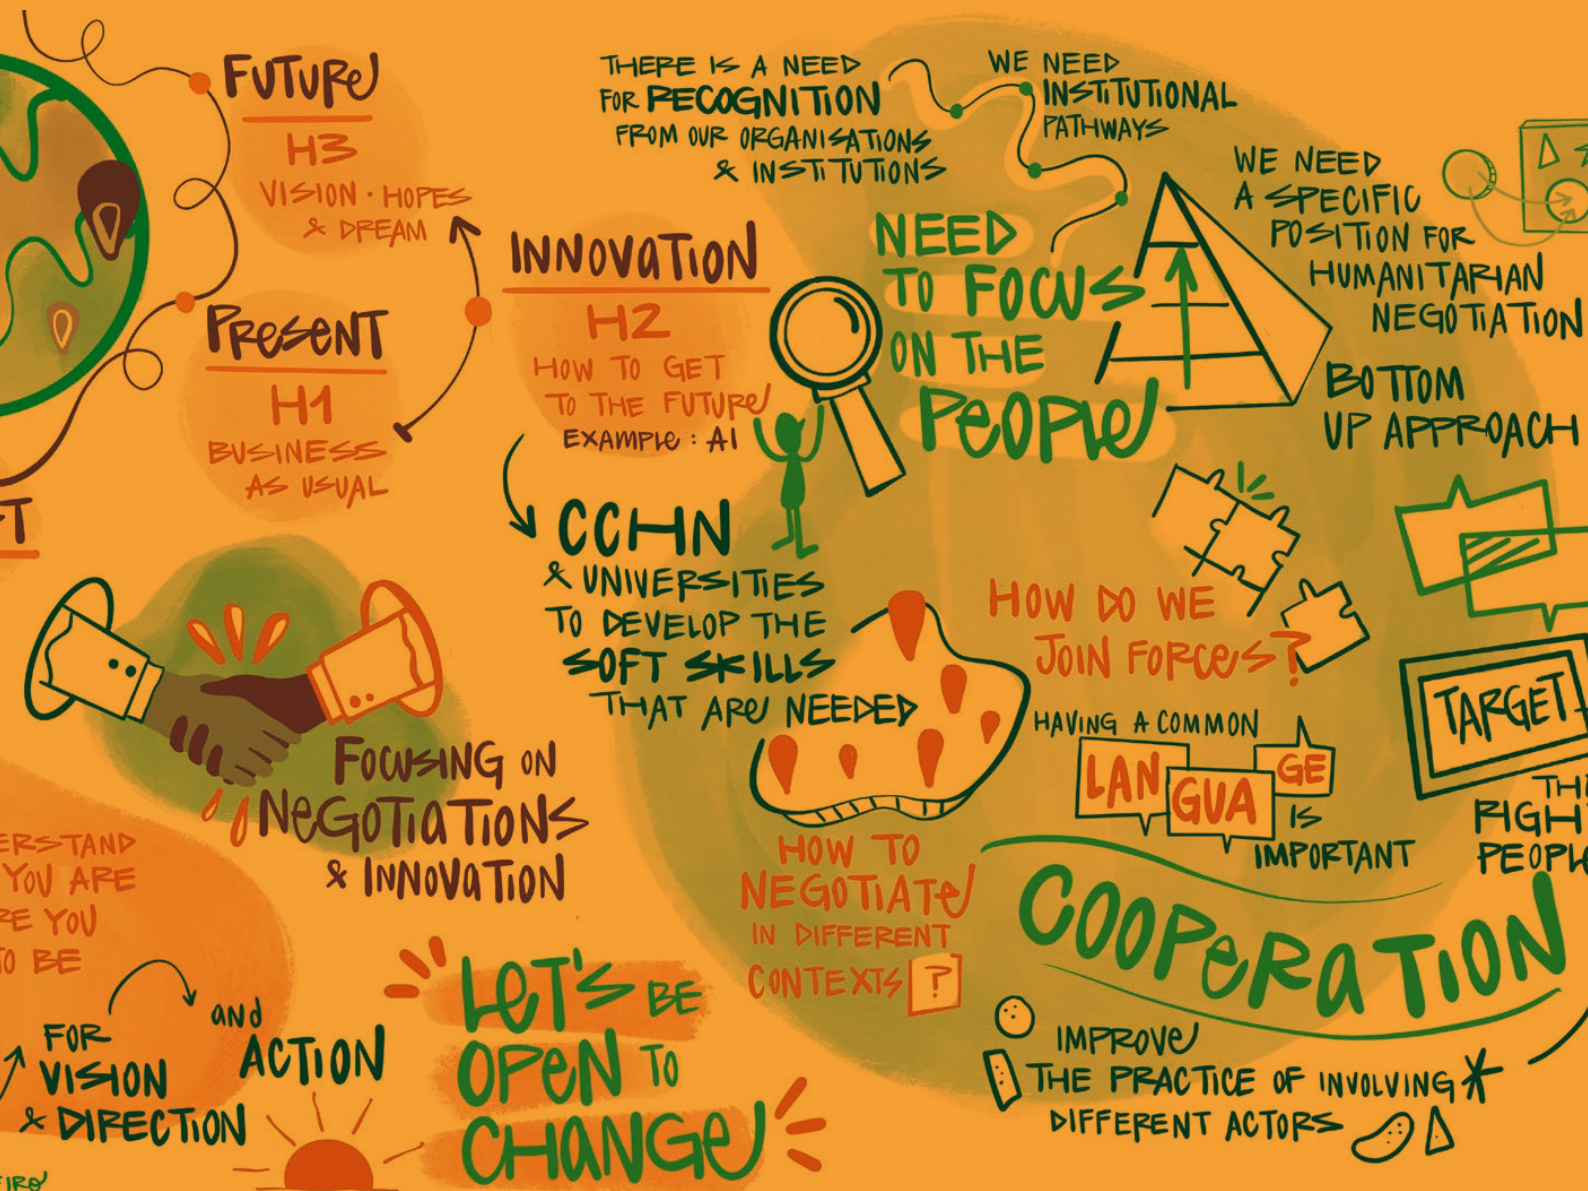 FUTURE
H3
VISION · HOPES
& DREAM
PRESENT
H1
BUSINESS
AS USUAL
INNOVATION
H2
HOW TO GET
TO THE FUTURE
EXAMPLE : AI
CCHN
& UNIVERSITIES
TO DEVELOP THE
SOFT SKILLS
THAT ARE NEEDED
THERE IS A NEED
FOR RECOGNITION
FROM OUR ORGANISATIONS
& INSTITUTIONS
WE NEED
INSTITUTIONAL
PATHWAYS
WE NEED
A SPECIFIC
POSITION FOR
HUMANITARIAN
NEGOTIATION
NEED
TO FOCUS
ON THE
PEOPLE
BOTTOM
UP APPROACH
HOW DO WE
JOIN FORCES?
HAVING A COMMON
LANGUAGE
IS
IMPORTANT
TARGET
RIGHT
PEOPLE
FOCUSING ON
NEGOTIATIONS
& INNOVATION
HOW TO
NEGOTIATE
IN DIFFERENT
CONTEXTS ?
COOPERATION
IMPROVE
THE PRACTICE OF INVOLVING
DIFFERENT ACTORS
YOU ARE
YOU
TO BE
FOR
VISION
& DIRECTION
and
ACTION
LET'S BE
OPEN TO
CHANGE